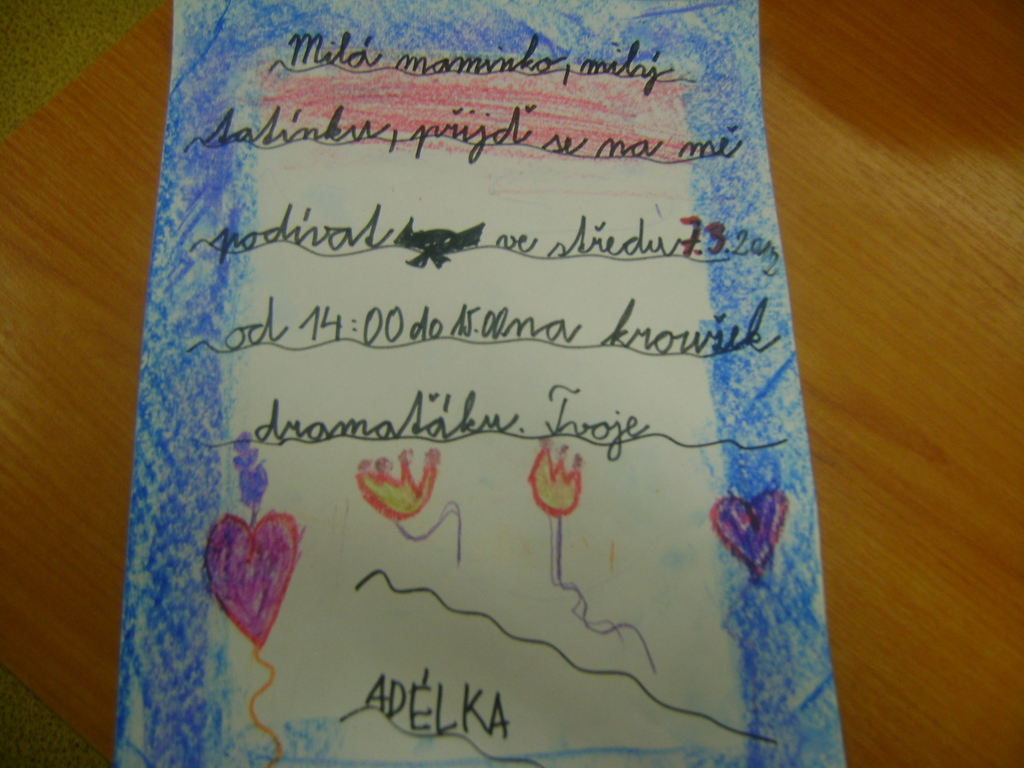 Milá maminko, milý
tatínku, přijď se na mě
podívat ve středu 7.3.
od 14:00 do 15.00 na kroužek
dramaťáku. Tvoje
ADÉLKA